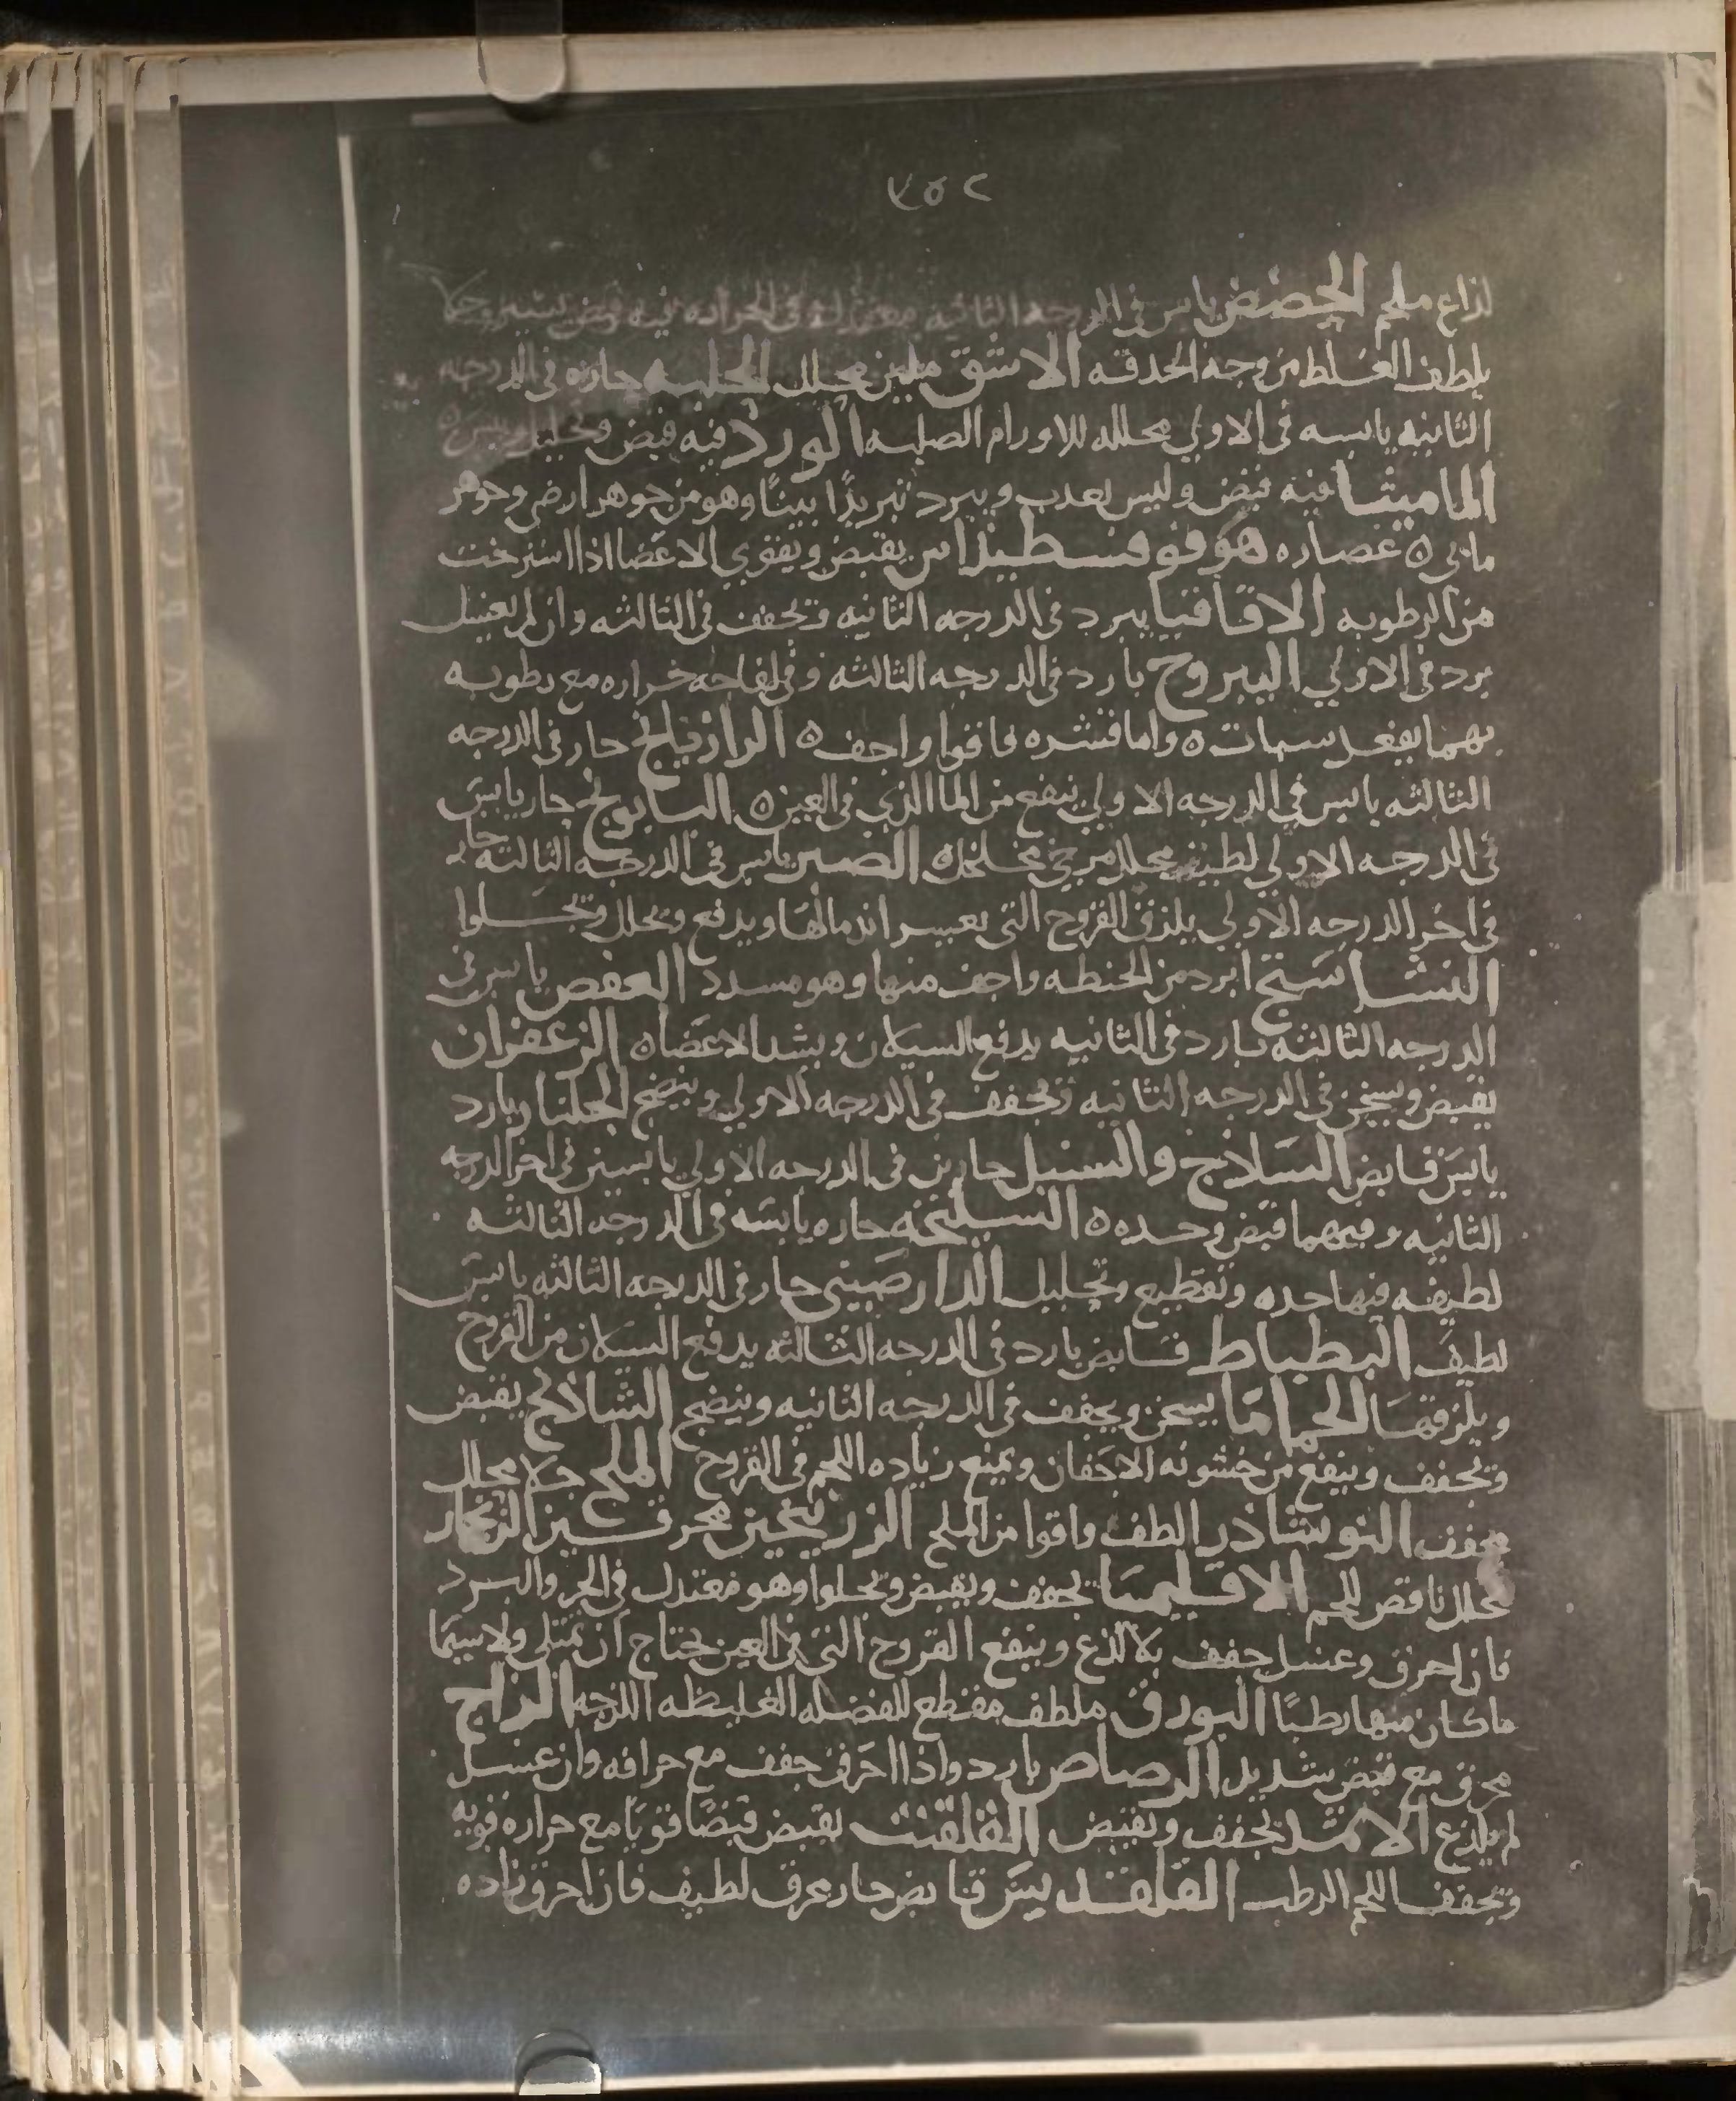 ٢٥٧
لذاع ملحم الحضض يابس في الدرجه الثانيه معتدل في الحراره فيه قبض يسير وجلا
يلطف الغلظ من وجه الحدقه الاشق ملين محلل الحلبه حاره في الدرجه
الثانيه يابسه في الاولي محلله للاورام الصلبه الورد فيه قبض وتحليل ويبس ٥
الماميثا فيه قبض وليس بعذب ويبرد تبريدًا بينًا وهو من جوهر ارضي وجوهر
مائي ٥ عصاره هوفوقسطيداس يقبض ويقوي الاعضا اذا استرخت
من الرطوبه الاقاقيا يبرد في الدرجه الثانيه وتجفف في الثالثه وان لم يغسل
برد في الاولي اليبروح بارد في الدرجه الثالثه وفي لفاحه حراره مع رطوبه
بهما يفعل سبات ٥ واما قشره فاقوا واجف ٥ الرازيانج حار في الدرجه
الثالثه يابس في الدرجه الاولي ينفع من الما الذي في العين ٥ البابونج حار يابس
في الدرجه الاولي لطيف محلل مرخي مخلخل ٥ الصبر يابس في الدرجه الثالثه حار
في اخر الدرجه الاولي يلزق القروح التي يعسر اندمالها ويدفع ويحلل وتجلوا
النشاستج ابرد من الحنطه واجف منها وهو مسدد العفص يابس في
الدرجه الثالثه بارد في الثانيه يدفع السيلان ويشد الاعضا ٥ الزعفران
يقبض ويسخن في الدرجه الثانيه وتجفف في الدرجه الاولي وينضج الجلنار بارد
يابس قابض السلاذج والسنبل حارين في الدرجه الاولي يابسين في اخر الدرجه
الثانيه وفيهما قبض وحده ٥ السليخه حاره يابسه في الدرجه الثالثه
لطيفه فيها حده وتقطيع وتحليل الدارصيني حار في الدرجه الثالثه يابس
لطيف البطباط قابض بارد في الدرجه الثالثه يدفع السيلان من القروح
ويلزقها الحماما يسخن ويجفف في الدرجه الثانيه وينضج الشاذنج يقبض
وتجفف وينفع من خشونه الاجفان ويمنع زياده اللحم في القروح الملح جلا محلل
مجفف النوشاذر الطف واقوا من الملح الزرنيخين محرقين الزنجار
محلل ناقص للحم الاقليميا تجفف ويقبض وتجلوا وهو معتدل في الحر والبرد
فان احرق وغسل جفف بلا لذع وينفع القروح التي في العين تحتاج ان تمتلي ولا سيما
ما كان منها رطبًا البورق ملطف مقطع للفضله الغليظه اللزجه الزاج
محرق مع قبض شديد الرصاص بارد واذا احرق جفف مع حرافه وان غسل
لم يلذع الاثمد يجفف ويقبض القلقنت يقبض قبضًا قويًا مع حراره قويه
وتجفف اللحم الرطب القلقند يبس قابض حار محرق لطيف فان احرق زاده